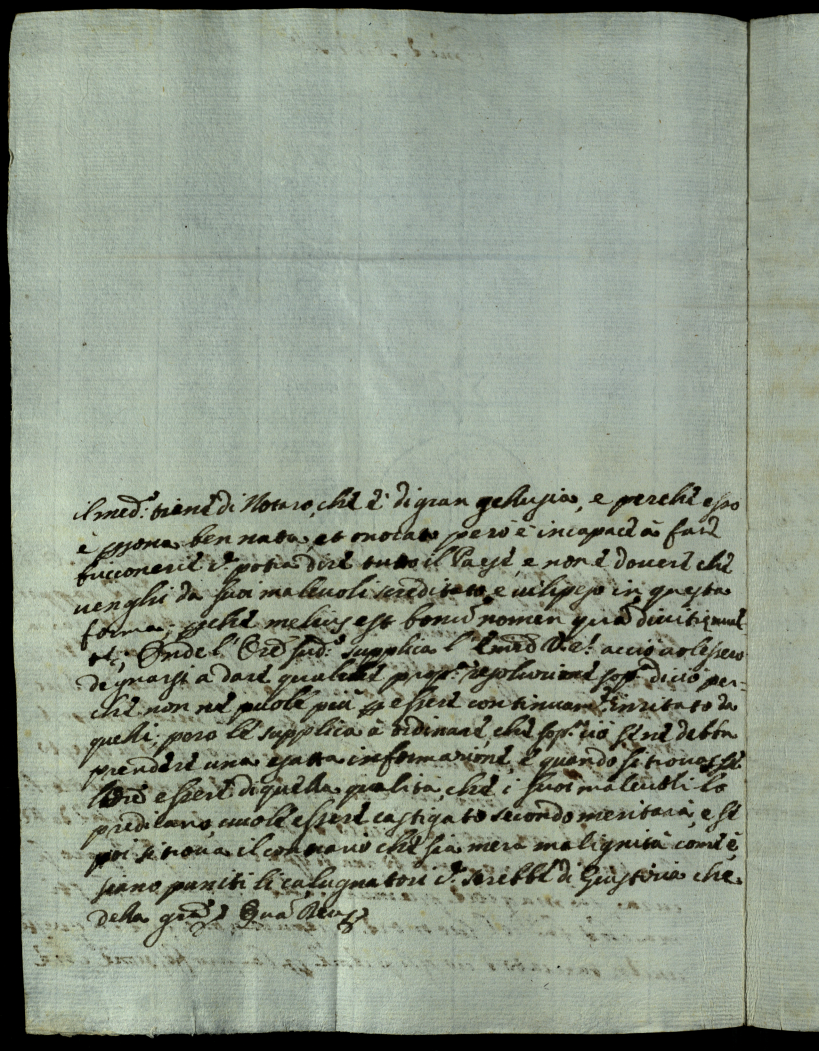 il med.º tiene di Notaro, che è di gran gellusia, e perche esso
è ꝑsona ben nata, et onorato però è incapace à fare
bricconerie
potria dire tutto il Paese, e non è dovere che
venghi da suoi malevoli screditato, e vilipeso in questa
forma, ꝑche melius est bonũ nomen quã divitiæ mult
et; Onde l'Ore sud.º supplica l' Emze VRe: acciò volessero
degnarsi a dare qualche prop.ª resoluzione sop.ª di ciò per-
che non ne puole più essere continuam.te inritato da
quelli; però le supplica à ordinare che sop.ª ciò se ne debba
prendere una esatta informazione, e quando si trovasse
l'Ore essere di quella qualità, che i suoi malevoli lo
predicano, vuole essere castigato secondo meritarà, e se
poi si trova il contrario che sia mera malignità come è,
siano puniti li calugnatori
sarebbe di Giustizia che
della gra: Quã Deus